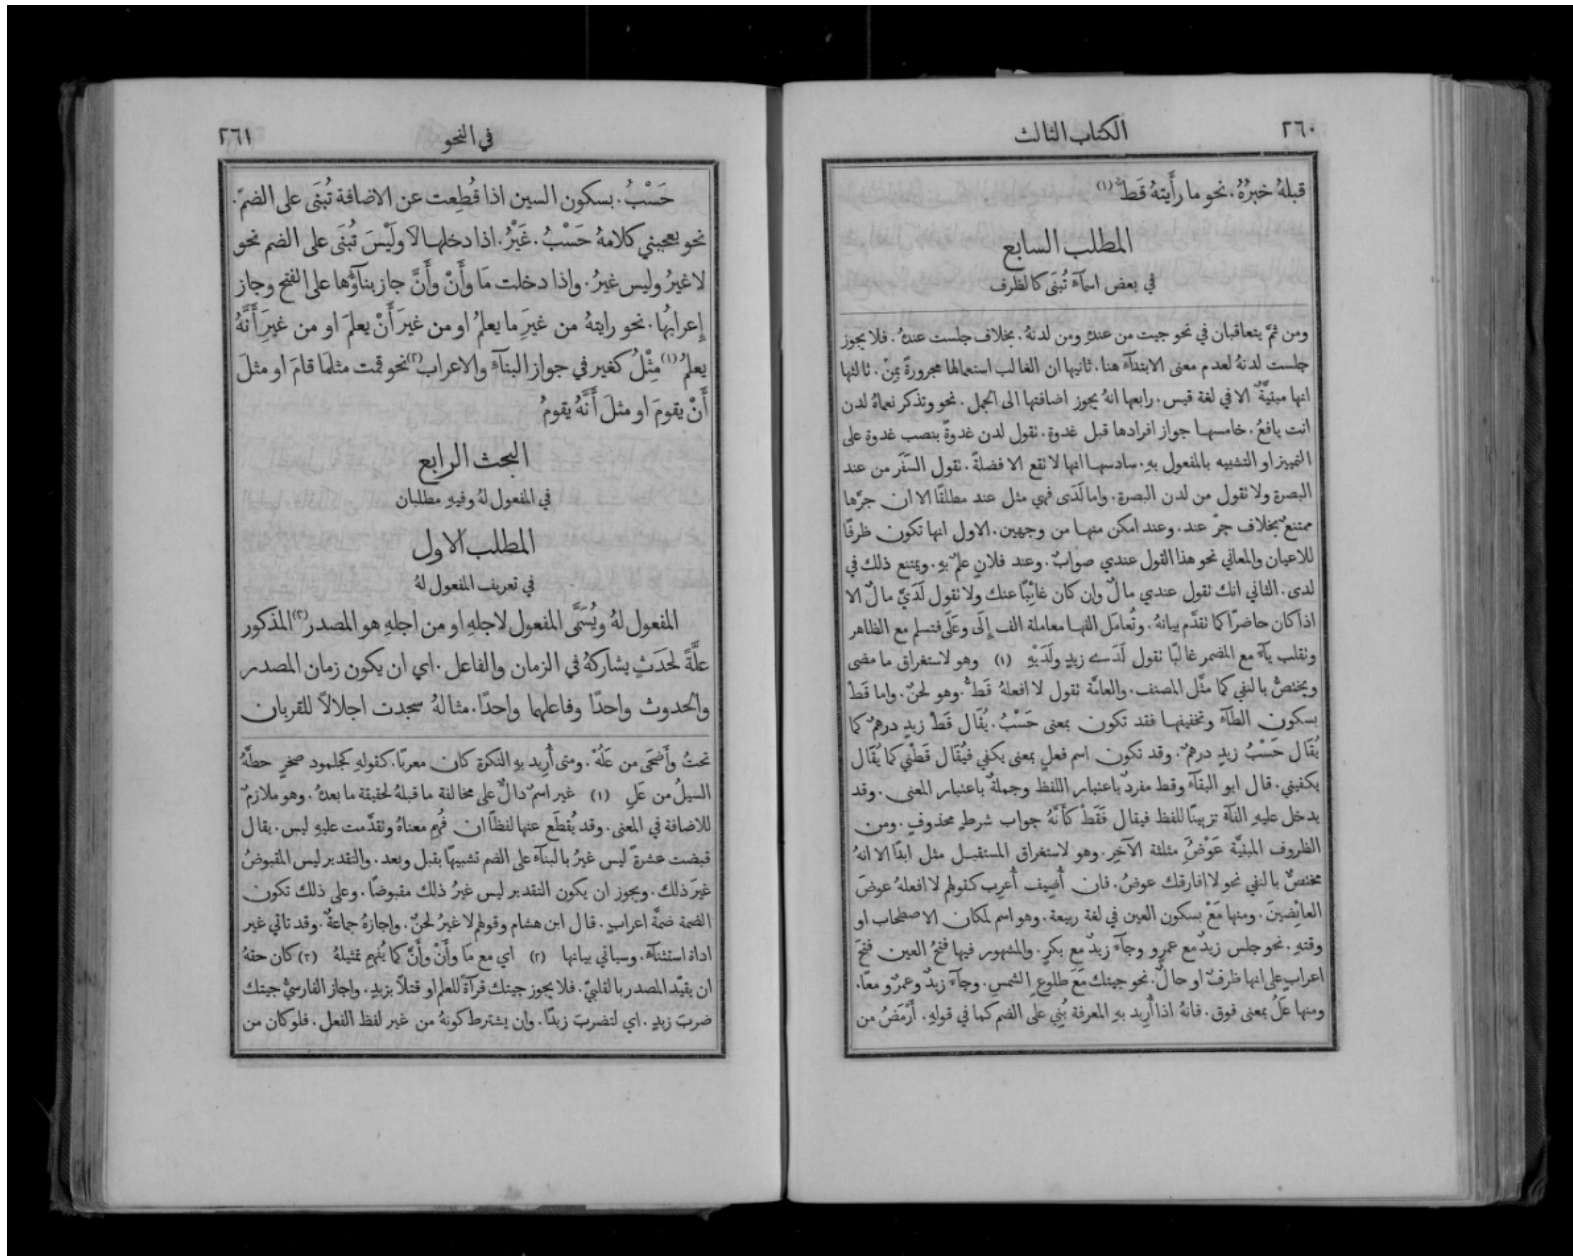 ٢٦٠
الكتاب الثالث
قبلهُ خبرُهُ. نحو ما رأَيتهُ قَطُّ (١)
المطلب السابع
في بعض اسمآءَ تُبنَى كالظرف
ومن ثمَّ يتعاقبان في نحو جيت من عندهِ ومن لدنهُ. بخلاف جلست عندهُ. فلا يجوز
جلست لدنهُ لعدم معنى الابتدآءِ هنا. ثانيها ان الغالب استعمالها مجرورةً بِمِنْ. ثالثها
انها مبنيَّةٌ الا في لغة قيس. رابعها انهُ يجوز اضافتها الى الجمل. نحو وتذكر نعماهُ لدن
انت يافعُ. خامسها جواز افرادها قبل غدوة. نقول لدن غدوةً بنصب غدوة على
التمييز او التشبيه بالمفعول بهِ. سادسها انها لا تقع الا فضلةً. نقول السَفَر من عند
البصرة ولا نقول من لدن البصرة. واما لَدَى فهي مثل عند مطلقًا الا ان جرَّها
ممتنعٌ بخلاف جرّ عند. وعند امكن منها من وجهين. الاول انها تكون ظرفًا
للاعيان والمعاني نحو هذا القول عندي صوابٌ. وعند فلانٍ علمٌ بهِ. ويمتنع ذلك في
لدى. الثاني انك نقول عندي مالٌ وإن كان غائبًا عنك ولا نقول لَدَيَّ مالٌ الا
اذا كان حاضرًا كما نقدَّم بيانهُ. وتُعامَل الفها معاملة الف إِلَى وعَلَى فتسلم مع الظاهر
ونقلب يآءً مع المضمر غالبًا نقول لَدَى زيدٍ ولَدَيْهِ (١) وهو لاستغراق ما مضى
ويختصُّ بالنفي كما مثَّل المصنف. والعامَّة نقول لا افعلهُ قَطُّ. وهو لحنٌ. واما قَطْ
بسكون الطآء وتخفيفها فقد تكون بمعنى حَسْبُ. يُقَال قَطْ زيدٍ درهمٌ كما
يُقَال حَسْبُ زيدٍ درهمٌ. وقد تكون اسم فعلٍ بمعنى يكفي فيُقَال قَطْنِي كما يُقَال
يكفيني. قال ابو البقآءِ وقط مفردٌ باعتبار اللفظ وجملةٌ باعتبار المعنى. وقد
يدخل عليهِ الفآءُ تزيينًا للفظ فيقال فَقَطْ كأَنَّهُ جواب شرطٍ محذوفٍ. ومن
الظروف المبنيَّة عَوْضُ مثلثة الآخِر. وهو لاستغراق المستقبل مثل ابدًا الا انهُ
مختصٌّ بالنفي نحو لا افارقك عوضُ. فان أُضِيف أُعرِب كقولهم لا افعلهُ عوضَ
العائضِينَ. ومنها مَعْ بسكون العين في لغة ربيعة. وهو اسم لمكان الاصطحاب او
وقتهِ. نحو جلس زيدٌ مع عمرٍو وجآءَ زيدٌ مع بكرٍ. والمشهور فيها فتحُ العين فتحَ
اعرابٍ على انها ظرفٌ او حالٌ. نحو جيتك مَعَ طلوع الشمسِ. وجآءَ زيدٌ وعمرٌو معًا.
ومنها عَلُ بمعنى فوق. فانهُ اذا أُرِيد بهِ المعرفة بُنِي على الضم كما في قولهِ. أَرْمَضُ من
في النحو
٢٦١
حَسْبُ. بسكون السين اذا قُطِعت عن الاضافة تُبنَى على الضمّ.
نحو يعجبني كلامهُ حَسْبُ. غَيْرُ. اذا دخلها لا ولَيْسَ تُبنَى على الضم نحو
لا غيرُ وليس غيرُ. واذا دخلت مَا وأَنْ وأَنَّ جاز بنآؤُها على الفتح وجاز
إعرابُها. نحو رايتهُ من غيرَ ما يعلمُ او من غيرَ أَنْ يعلمَ او من غيرِ أَنَّهُ
يعلمُ (١) مِثْلُ كغير في جواز البنآءِ والاعراب (٢) نحو قمت مثلمَا قامَ او مثلَ
أَنْ يقومَ او مثلَ أَنَّهُ يقومُ
البحث الرابع
في المفعول لهُ وفيهِ مطلبان
المطلب الاول
في تعريف المفعول لهُ
المفعول لهُ ويُسَمَّى المفعول لاجلهِ او من اجلهِ هو المصدر (٣) المذكور
علَّةً لحَدَثٍ يشاركهُ في الزمان والفاعل. اي ان يكون زمان المصدر
والحدوث واحدًا وفاعلهما واحدًا. مثالهُ سجدت اجلالاً للقربان
تحتُ وأَضحَى من عَلُهْ. ومتى أُرِيد بهِ النكرة كان معربًا. كقولهِ كجلمود صخرٍ حطَّهُ
السيلُ من عَلِ (١) غير اسمٌ دالٌّ على مخالفة ما قبلهُ لحقيقة ما بعدهُ. وهو ملازمٌ
للاضافة في المعنى. وقد يُقطَع عنها لفظًا ان فُهِم معناهُ ونقدَّمت عليهِ ليس. يقال
قبضت عشرةً ليس غيرُ بالبنآءِ على الضم تشبيهًا بقبل وبعد. والتقدير ليس المقبوضُ
غيرَ ذلك. ويجوز ان يكون التقدير ليس غيرُ ذلك مقبوضًا. وعلى ذلك تكون
الضمة ضمَّة اعراب. قال ابن هشام وقولهم لا غيرُ لحنٌ. واجازهُ جماعةٌ. وقد تاتي غير
اداة استثنآءٍ. وسياتي بيانها (٢) اي مع مَا وأَنْ وأَنَّ كما يُفهَم بتمثيلهِ (٣) كان حقهُ
ان يقيِّد المصدر بالقلبيّ. فلا يجوز جيتك قرآءَةً للعلم او قتلاً بزيدٍ. واجاز الفارسيُّ جيتك
ضربَ زيدٍ. اي لتضربَ زيدًا. وان يشترط كونهُ من غير لفظ الفعل. فلو كان من